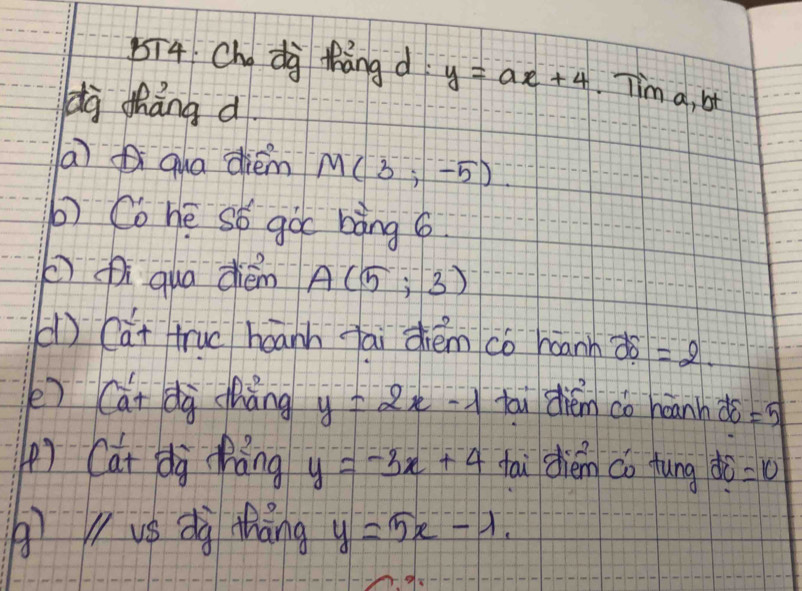 BT4. Cho đg thẳng d: y = ax + 4. Tìm a, bt
đg thẳng d.
a) Đi qua điểm M(3; -5).
b) Có hệ số góc bằng 6.
c) Đi qua điểm A(5; 3)
d) Cắt trục hoành tại điểm có hoành độ = 2.
e) Cắt đg thẳng y = 2x - 1 tại điểm có hoành độ = 5
f) Cắt đg thẳng y = -3x + 4 tại điểm có tung độ = 10
g) // vs đg thẳng y = 5x - 1.